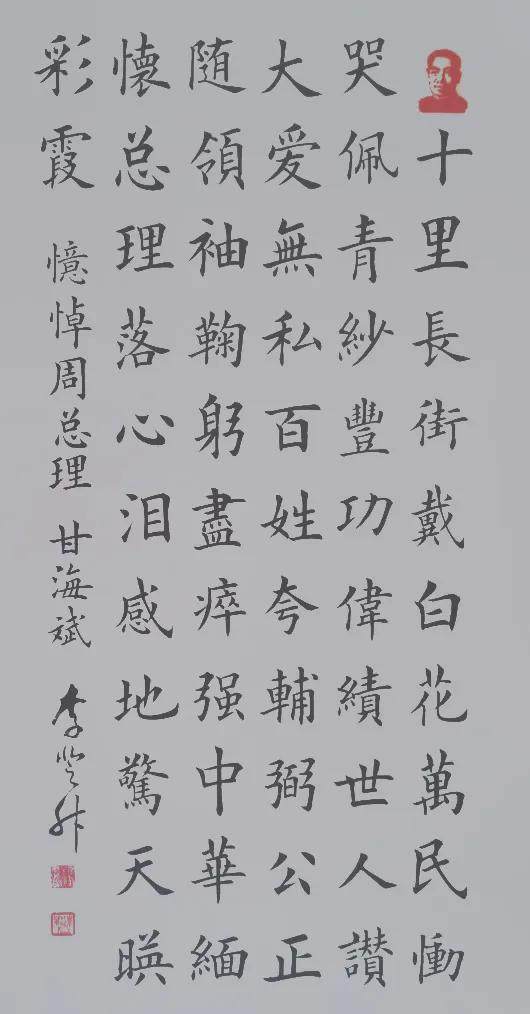 十里長街戴白花萬民慟
哭佩青紗豐功偉績世人讃
大爱無私百姓夸輔弼公正
随領袖鞠躬盡瘁强中華緬
懷总理落心泪感地驚天暎
彩霞
憶悼周总理 甘海斌